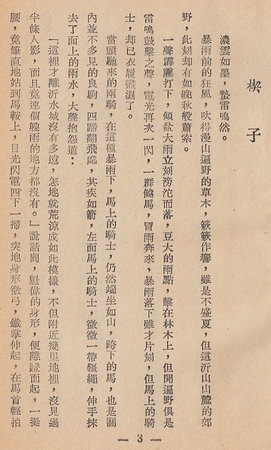 楔子
濃雲如墨，蟄雷鳴然。
暴雨前的狂風，吹得漫山遍野的草木，簌簌作響，雖是不盛夏，但這沂山山麓的郊
野，此刻却有如晚秋般蕭索。
一聲霹靂打下，傾盆大雨立刻滂沱而落，豆大的雨點，擊在林木上，但聞遍野俱是
雷鳴鼓擊之聲，電光再次一閃，一群健馬，冒雨奔來，暴雨落下雖才片刻，但馬上的騎
士，却已衣履盡濕了。
當頭馳來的兩騎，在這種暴雨下，馬上的騎士，仍然端坐如山，跨下的馬，也是關
內並不多見的良駒，四蹄翻飛處，其疾如箭，左面馬上的騎士，微微一帶韁繩，伸手抹
去面上的雨水，大聲抱怨道：
「這裡才離沂水城沒有多遠，怎地就荒涼成如此模樣，不但附近幾里地裡，沒見過
半條人影，而且竟連個躲雨的地方都沒有。」說話間，魁偉的身形，便離鐙而起，一挺
腰，竟筆直地站到馬鞍上，目光閃電四下一掃，突地身形微弓，鐵掌伸起，在馬首輕拍
— 3 —